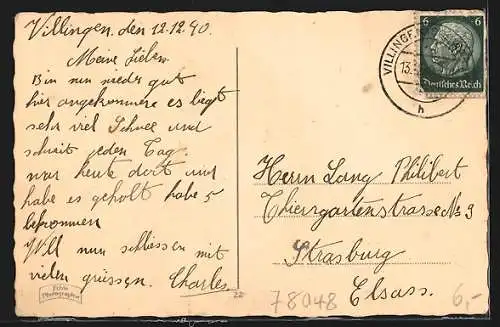 Villingen, den 12.12.40.
Meine Lieben
Bin nun wieder gut
hier angekommen es liegt
sehr viel Schnee und
schneit jeden Tag.
war heute dort und
habe es geholt habe 5
bekommen
Will nun schliessen mit
vielen grüssen. Charles
Echte
Photographie
22
VILLINGE
13.
h
6 6
Deutsches Reich
Herrn Lang Philibert
Thiergartenstrasse No 9
Strasburg
Elsass.
78048
6,-